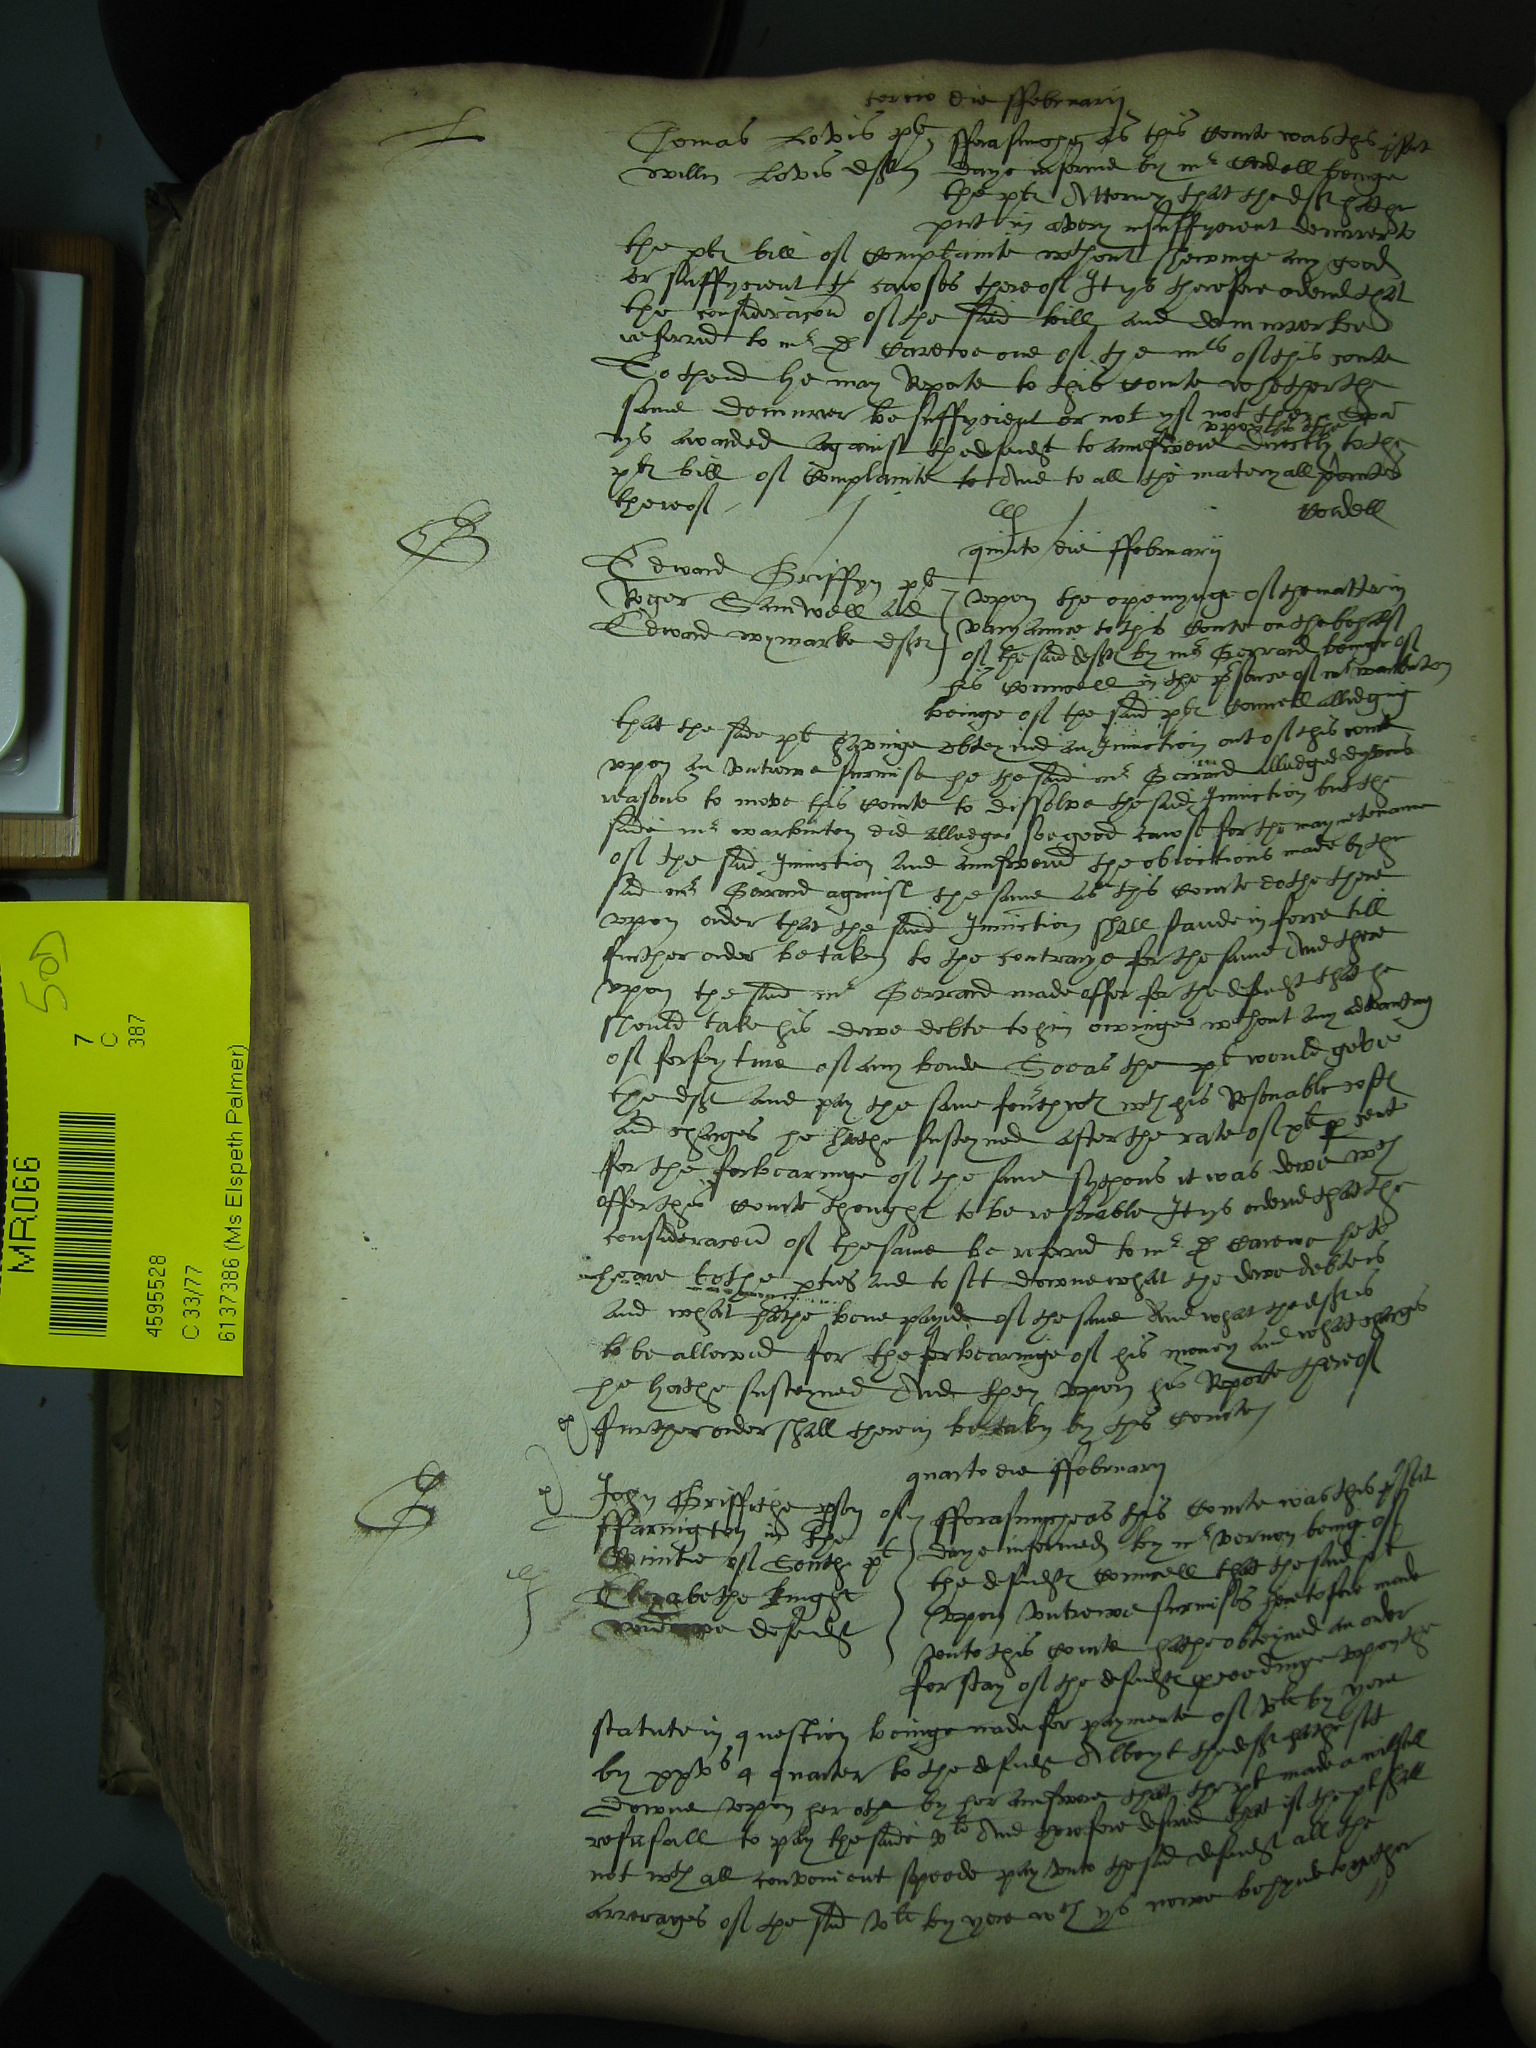 tercio die ffebruarij
L
Thomas Lovis plt
Willm Lovis deft
fforasmoche as this Courte was this present
daye informed by mr Cordell beinge
the plt Attorney that the deft hathe
put in a very insuffycient demurrer to
the plt bill of Complainte without shewinge any good
or suffycient cawses thereof It ys therefore ordred that
the consideracon of the said bill and demurrer be
referred to mr Carewe one of the mrs of this courte
To thend he may Reporte to this Courte whether the
same demurrer be suffycient or not yf not then a
upon
ys awarded against the defendt to aunswere directly to the
plt bill of Complainte and to all the materyall pointes
thereof
Cordell
G
quinto die ffebruarij
Edward Griffyn plt
Roger Samwell and
Edward wymarke deftes
Upon the openynge of the matter in
varyaunce to this Courte on the behalf
of the said deft by mr Gerrard beinge of
his Councell in the presence of mr warbuton
beinge of the said plt Councell alledging
that the said plt havinge obteyned an Iniunction out of this courte
upon an untrewe surmise he the said mr Gerrard alledged dyvers
reasons to move this Courte to dissolve the said Iniunction but the
saide mr warbuton did alledge soe good cawse for the mayntenaunce
of the said Iniunction and aunswered the obiections made by the
said mr Gerrard against the same as this Courte dothe there
upon order that the said Iniunction shall stande in force till
further order be taken to the contrarye for the same And there
upon the said mr Gerrard made offer for the defendt that he
should take his dewe debte to him owinge without any advantage
of forfeyture of any bonde Soo as the plt would geve
the deft and pay the same fourthwth wth his Resonable costes
and charges he hathe susteyned after the rate of per cent
for the forbearinge of the same sythens it was dewe wch
offer this Courte thought to be resonable It ys ordered that the
consideracon of the same be referred to mr Carewe he to
heare bothe partes and to set downe what the dewe debte is
and what hathe bene payde of the same And what the deft is
to be allowed for the forbearinge of his money and what charges
he hathe susteyned And then upon his Reporte thereof
further order shall therein be taken by this Courte
quarto die ffebruarij
G
John Griffithe parson of
ffarnington in the
Countie of South plt
Elizabethe Knight
widdowe defendt
fforasmuch as this Courte was this present
daye informed by mr vernon being of
the defendt Councell that the said plt
upon untrewe surmises heretofore made
unto this Courte hathe obteyned an order
for stay of the defendt proceedinge upon the
statute in question beinge made for paymente of vli by yere
by xxvs a quarter to the defendt Albeyt the deft hathe sett
downe upon her othe by her aunswere that the plt made a wilfull
refusall to pay the saide vli And therefore desired that if the plt shall
not wth all convenient speede pay unto the said defendt all the
arrerages of the said vli by yere wch ys nowe behynde together
505
MR066
7
C
387
4595528
C 33/77
6137386 (Ms Elspeth Palmer)